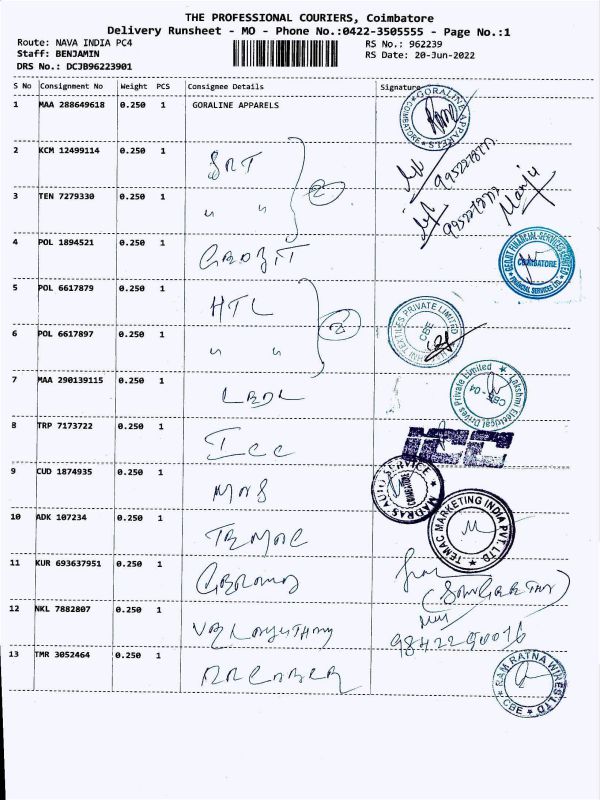 THE PROFESSIONAL COURIERS, Coimbatore
Delivery Runsheet - MO - Phone No.:0422-3505555 - Page No.:1
Route: NAVA INDIA PC4 RS No.: 962239
Staff: BENJAMIN RS Date: 20-Jun-2022
DRS No.: DCJB96223901
S No Consignment No Weight PCS Consignee Details Signature
1 MAA 288649618 0.250 1 GORALINE APPARELS
GORALINE APPARELS COIMBATORE
2 KCM 12499114 0.250 1 SRT 2
3 TEN 7279330 0.250 1 " " Manju
4 POL 1894521 0.250 1
GEOJIT FINANCIAL SERVICES LIMITED COIMBATORE FINANCIAL SERVICES LTD.
5 POL 6617879 0.250 1 HTL 2
TEXTILES PRIVATE LIMITED CBE
6 POL 6617897 0.250 1 " "
7 MAA 290139115 0.250 1 LEDL
Lakshmi Electrical Drives Private Limited CBE-04
8 TRP 7173722 0.250 1 ICC
ICC
9 CUD 1874935 0.250 1 MAS
MADRAS AUTO SERVICE COIMBATORE
10 ADK 107234 0.250 1 TEMAC
TEMAC MARKETING INDIA PVT. LTD
11 KUR 693637951 0.250 1
12 NKL 7882807 0.250 1
9842290016
13 TMR 3052464 0.250 1
RAM RATNA WIRES LTD CBE